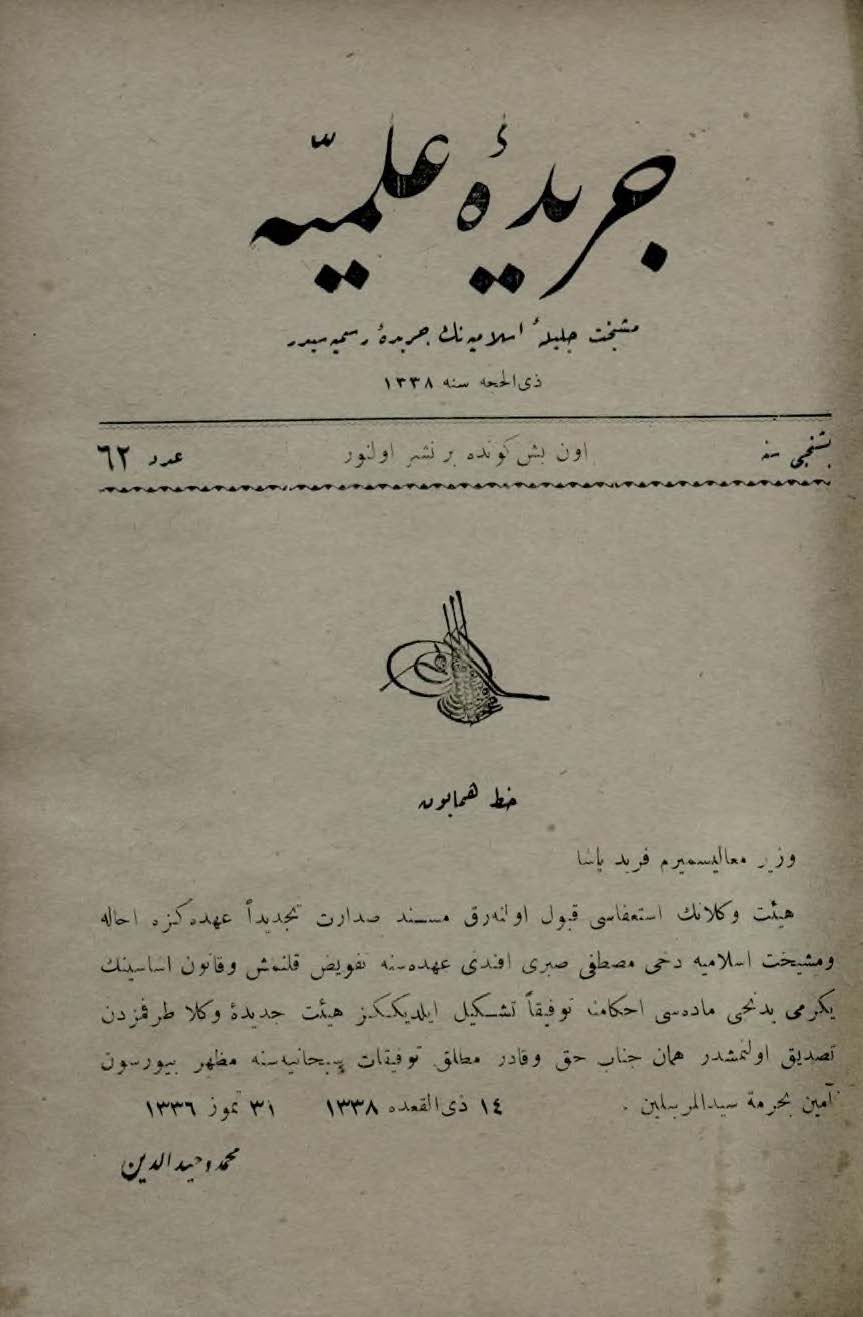 جريدۀ علميّه
مشيخت جليلۀ اسلاميه‌نك جريدۀ رسميه‌سيدر
ذى‌الحجه سنه ١٣٣٨
بشنجى سنه
اون بش كونده بر نشر اولنور
عدد ٦٢
خط همايون
وزير معاليسميرم فريد پاشا
هيئت وكلانك استعفاسى قبول اولنه‌رق مسند صدارت تجديداً عهده‌كزه احاله
ومشيخت اسلاميه دخى مصطفى صبرى افندى عهده‌سنه تفويض قلنمش وقانون اساسينك
يكرمى يدنجى ماده‌سى احكامنه توفيقاً تشكيل ايلديككز هيئت جديدۀ وكلا طرفمزدن
تصديق اولنمشدر همان جناب حق وقادر مطلق توفيقات سبحانيه‌سنه مظهر بيورسون
آمين بحرمة سيدالمرسلين .
١٤ ذى‌القعده ١٣٣٨ ٣١ تموز ١٣٣٦
محمد وحيدالدين